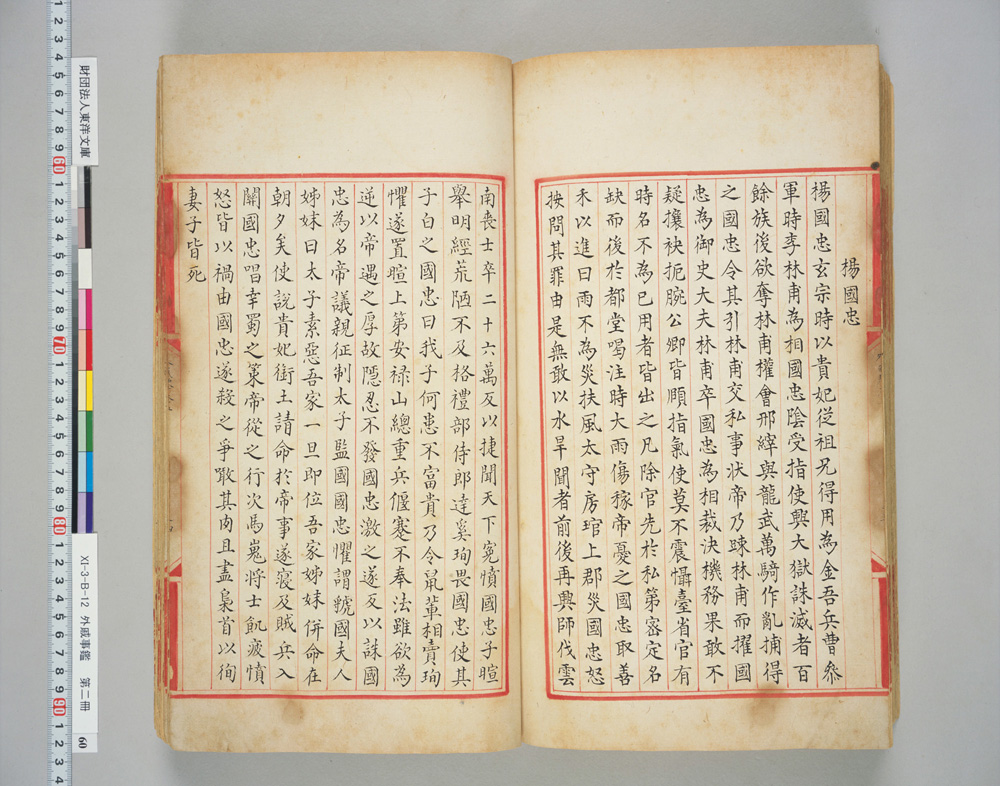 楊國忠
楊國忠玄宗時以貴妃從祖兄得用為金吾兵曹叅
軍時李林甫為相國忠陰受指使興大獄誅滅者百
餘族後欲奪林甫權會邢縡與龍武萬騎作亂捕得
之國忠令其引林甫交私事狀帝乃踈林甫而擢國
忠為御史大夫林甫卒國忠為相裁決機務果敢不
疑攘袂扼腕公卿皆頤指氣使莫不震懾臺省官有
時名不為已用者皆出之凡除官先於私第密定名
缺而後於都堂喝注時大雨傷稼帝憂之國忠取善
禾以進曰雨不為災扶風太守房琯上郡災國忠怒
按問其罪由是無敢以水旱聞者前後再興師伐雲
南喪士卒二十六萬反以捷聞天下寃憤國忠子暄
舉明經荒陋不及格禮部侍郎達奚珣畏國忠使其
子白之國忠曰我子何患不富貴乃令鼠輩相賣珣
懼遂置暄上第安祿山總重兵偃蹇不奉法雖欲為
逆以帝遇之厚故隱忍不發國忠激之遂反以誅國
忠為名帝議親征制太子監國國忠懼謂虢國夫人
姊妹曰太子素惡吾家一旦即位吾家姊妹併命在
朝夕矣使說貴妃銜土請命於帝事遂寢及賊兵入
關國忠唱幸蜀之策帝從之行次馬嵬將士飢疲憤
怒皆以禍由國忠遂殺之爭噉其肉且盡梟首以徇
妻子皆死
財団法人東洋文庫
XI-3-B-12 外戚事鑑 第二冊 60